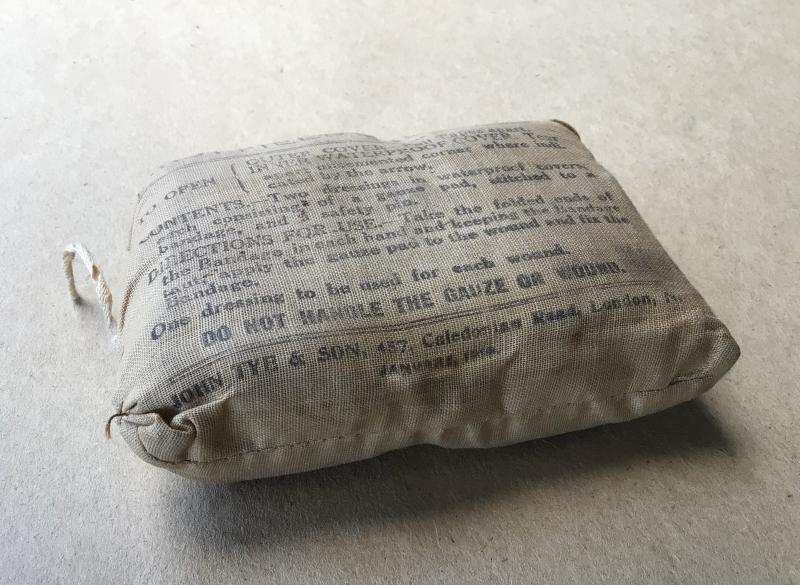 TO OPEN { OUTER COVER
INNER WATERPROOF COVER. Tear
apart uncemented corner where indi-
cated by the arrow.
CONTENTS.—Two dressings in waterproof covers,
each consisting of a gauze pad, stitched to a
bandage, and safety pin.
DIRECTIONS FOR USE. Take the folded ends of
the Bandage in each hand and keeping the Bandage
taut, apply the gauze pad to the wound and fix the
Bandage.
One dressing to be used for each wound.
DO NOT HANDLE THE GAUZE OR WOUND.
JOHN TYE & SON, 457, Caledonian Road, London, N.
JANUARY,